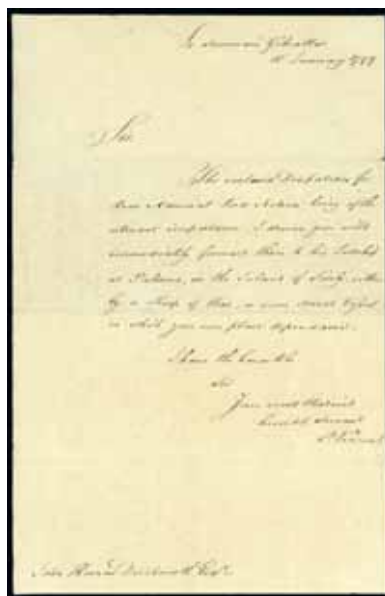 Gibraltar
January 1799
Sir
The enclosed dispatches for
Rear Admiral Lord Nelson being of the
utmost importance, I desire you will
immediately forward them to his Lordship
at Palermo, in the Island of Sicily, either
by a Sloop of War, or some
in which you can place dependance.
I have the honor to be
Sir
Your most Obedient
humble Servant
St Vincent
John Duckworth Esqr